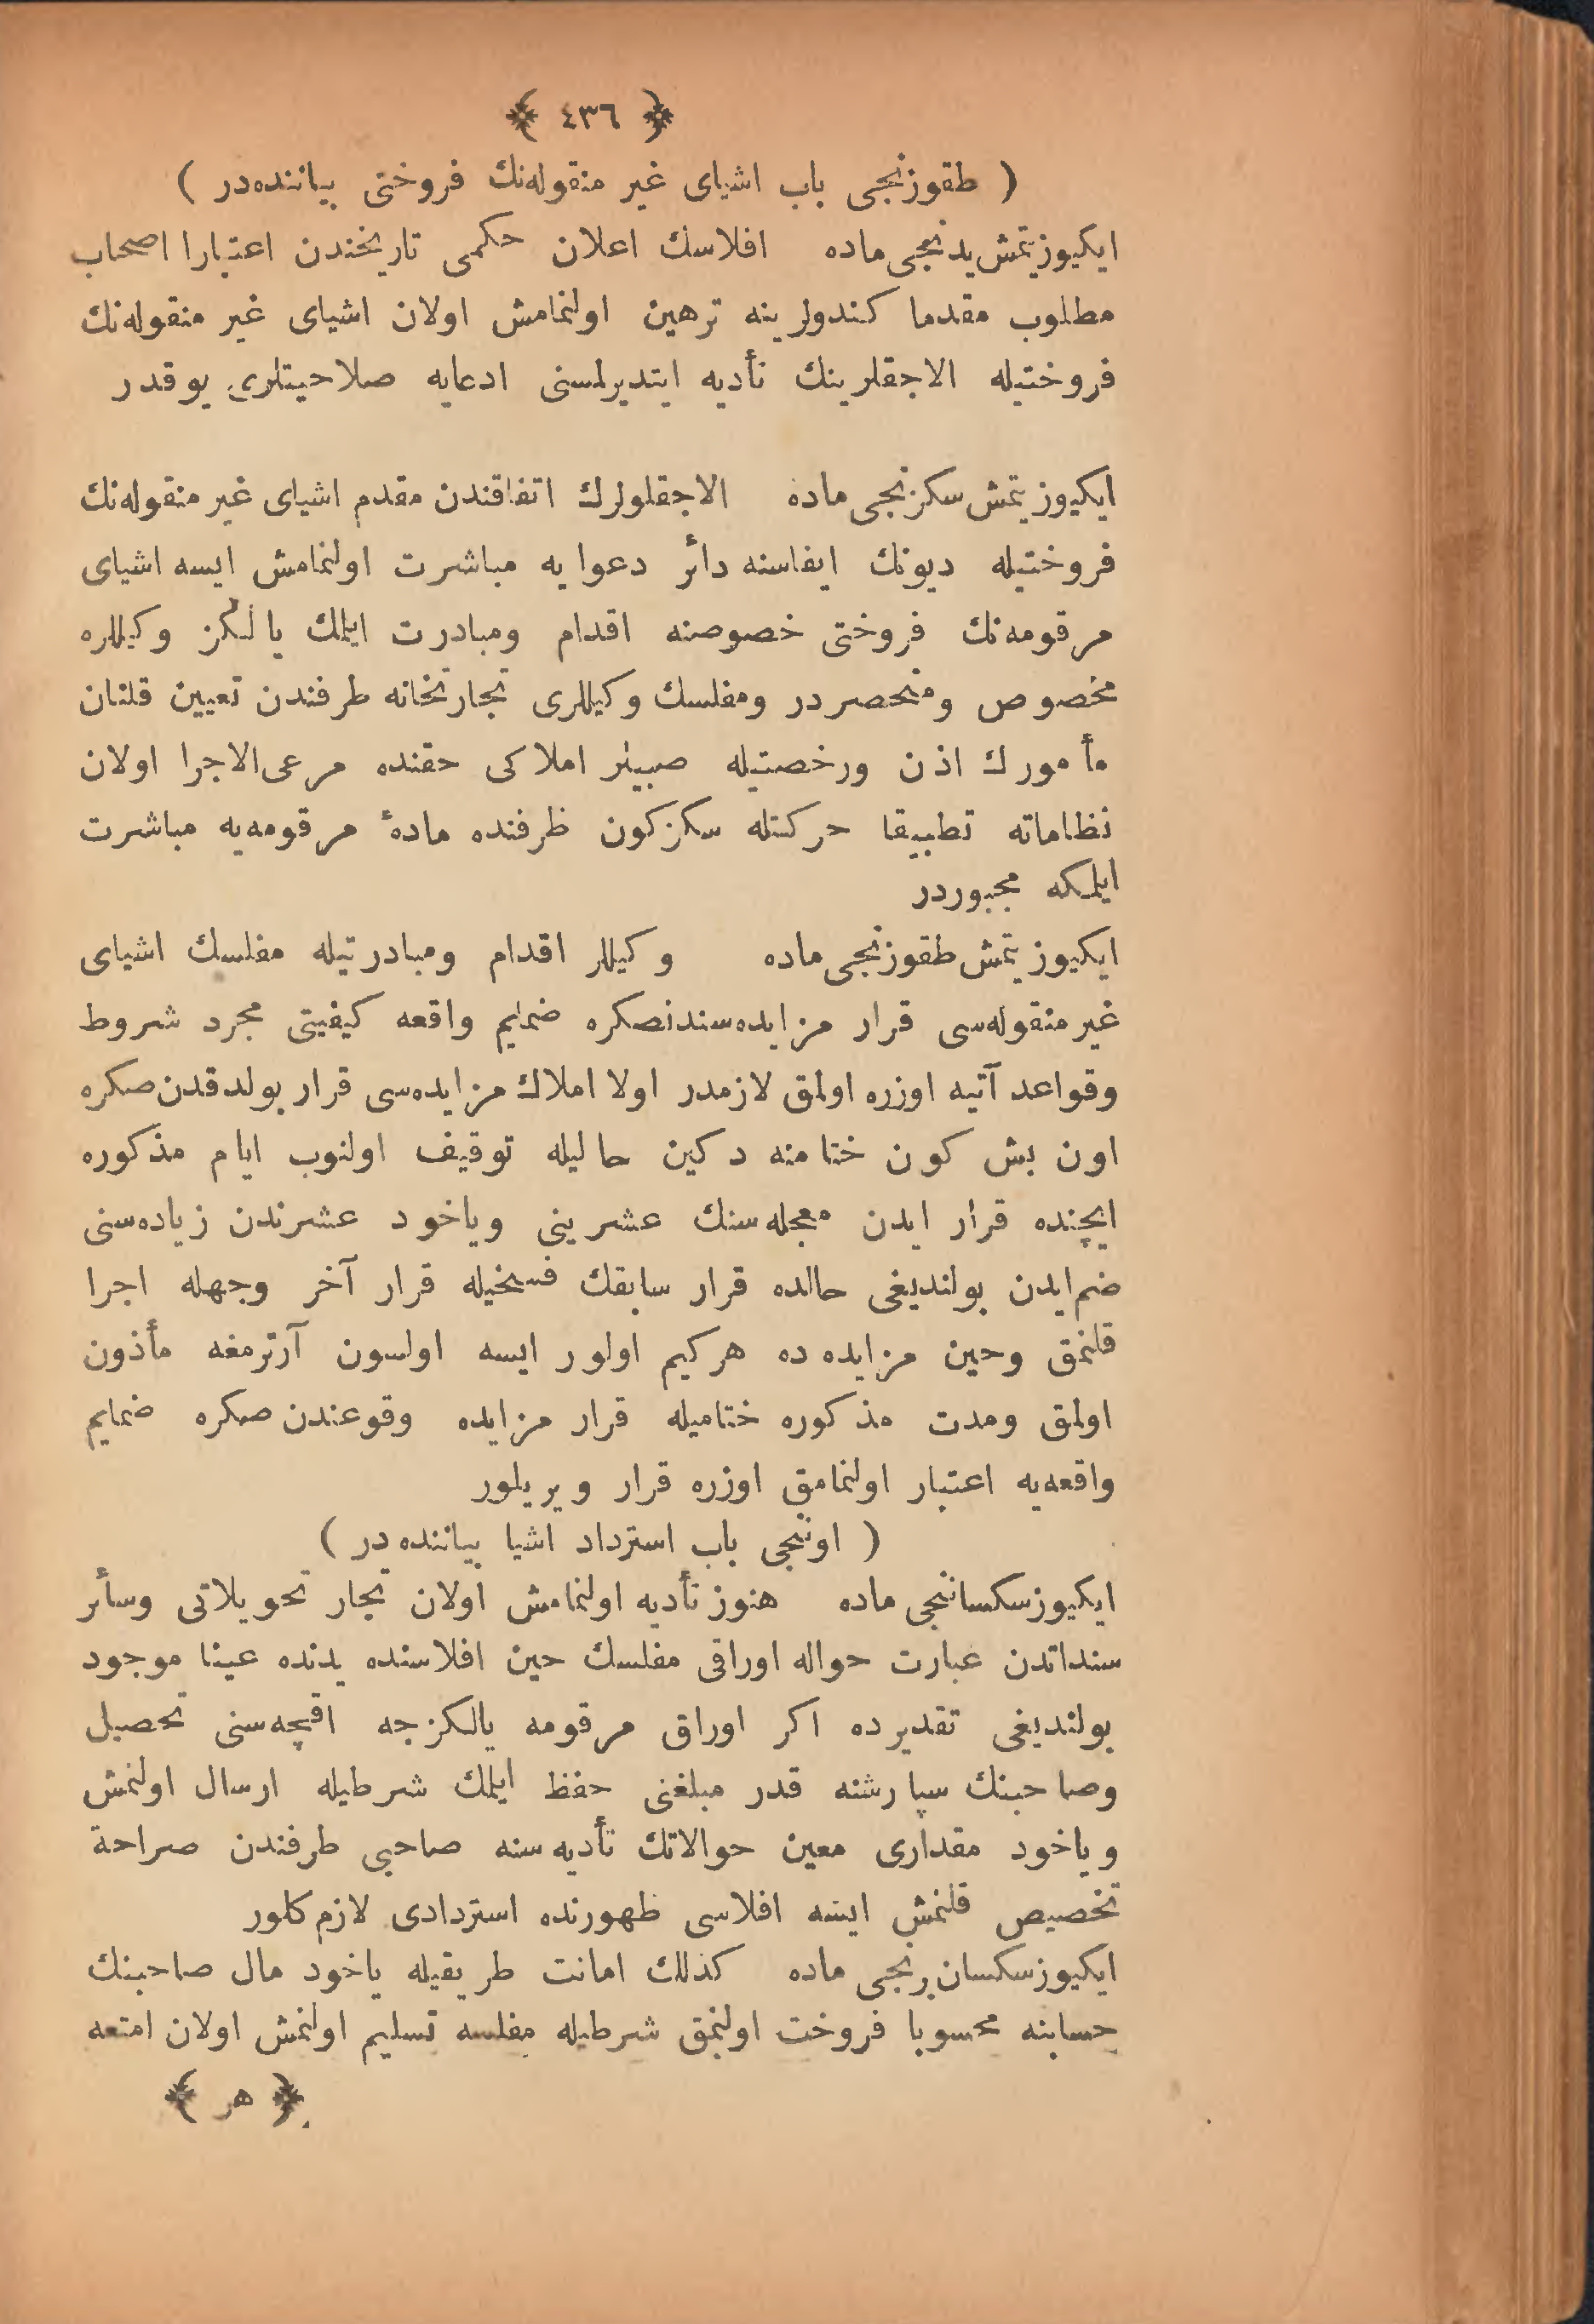 ﴿ ٤٣٦ ﴾
( طقوزنجی باب اشیای غیر منقوله‌نك فروختی بیاننده‌در )
ایكیوزیتمش‌یدنجی‌ماده افلاسك اعلان حكمی تاریخندن اعتبارا اصحاب
مطلوب مقدما كندولرینه ترهین اولنمامش اولان اشیای غیر منقوله‌نك
فروختیله الاجقلرینك تأدیه ایتدیرلمسنی ادعایه صلاحیتلری یوقدر
ایكیوزیتمش‌سكزنجی‌ماده الاجقلولرك اتفاقندن مقدم اشیای غیر منقوله‌نك
فروختیله دیونك ایفاسنه دائر دعوایه مباشرت اولنمامش ایسه اشیای
مرقومه‌نك فروختی خصوصنه اقدام ومبادرت ایلمك یالڭز وكیللره
مخصوص ومنحصردر ومفلسك وكیللری تجارتخانه طرفندن تعیین قلنان
مأمورك اذن ورخصتیله صبیلر املاكی حقنده مرعی‌الاجرا اولان
نظاماته تطبیقا حركتله سكزكون ظرفنده مادهٔ مرقومه‌یه مباشرت
ایلمكه مجبوردر
ایكیوزیتمش‌طقوزنجی‌ماده وكیللر اقدام ومبادرتیله مفلسك اشیای
غیر منقوله‌سی قرار مزایده‌سندنصكره ضمایم واقعه كیفیتی مجرد شروط
وقواعد آتیه اوزره اولمق لازمدر اولا املاك مزایده‌سی قرار بولدقدن‌صكره
اون بش كون ختامنه دكین حالیله توقیف اولنوب ایام مذكوره
ایچنده قرار ایدن معجله‌سنك عشرینی ویاخود عشرندن زیاده‌سنی
ضم‌ایدن بولندیغی حالده قرار سابقك فسخیله قرار آخر وجهله اجرا
قلنمق وحین مزایده‌ده هركیم اولور ایسه اولسون آرترمغه مأذون
اولمق ومدت مذكوره ختامیله قرار مزایده وقوعندن صكره ضمایم
واقعه‌یه اعتبار اولنمامق اوزره قرار ویریلور
( اوننجی باب استرداد اشیا بیاننده‌در )
ایكیوزسكساننجی ماده هنوز تأدیه اولنمامش اولان تجار تحویلاتی وسائر
سنداتدن عبارت حواله اوراقی مفلسك حین افلاسنده یدنده عینا موجود
بولندیغی تقدیرده اكر اوراق مرقومه یالكزجه اقچه‌سنی تحصیل
وصاحبنك سپارشنه قدر مبلغنی حفظ ایلمك شرطیله ارسال اولنمش
ویاخود مقداری معین حوالاتك تأدیه‌سنه صاحبی طرفندن صراحة
تخصیص قلنمش ایسه افلاسی ظهورنده استردادی لازم‌كلور
ایكیوزسكسان‌برنجی‌ماده كذلك امانت طریقیله یاخود مال صاحبنك
حسابنه محسوبا فروخت اولنمق شرطیله مفلسه تسلیم اولنمش اولان امتعه
﴿ هر ﴾